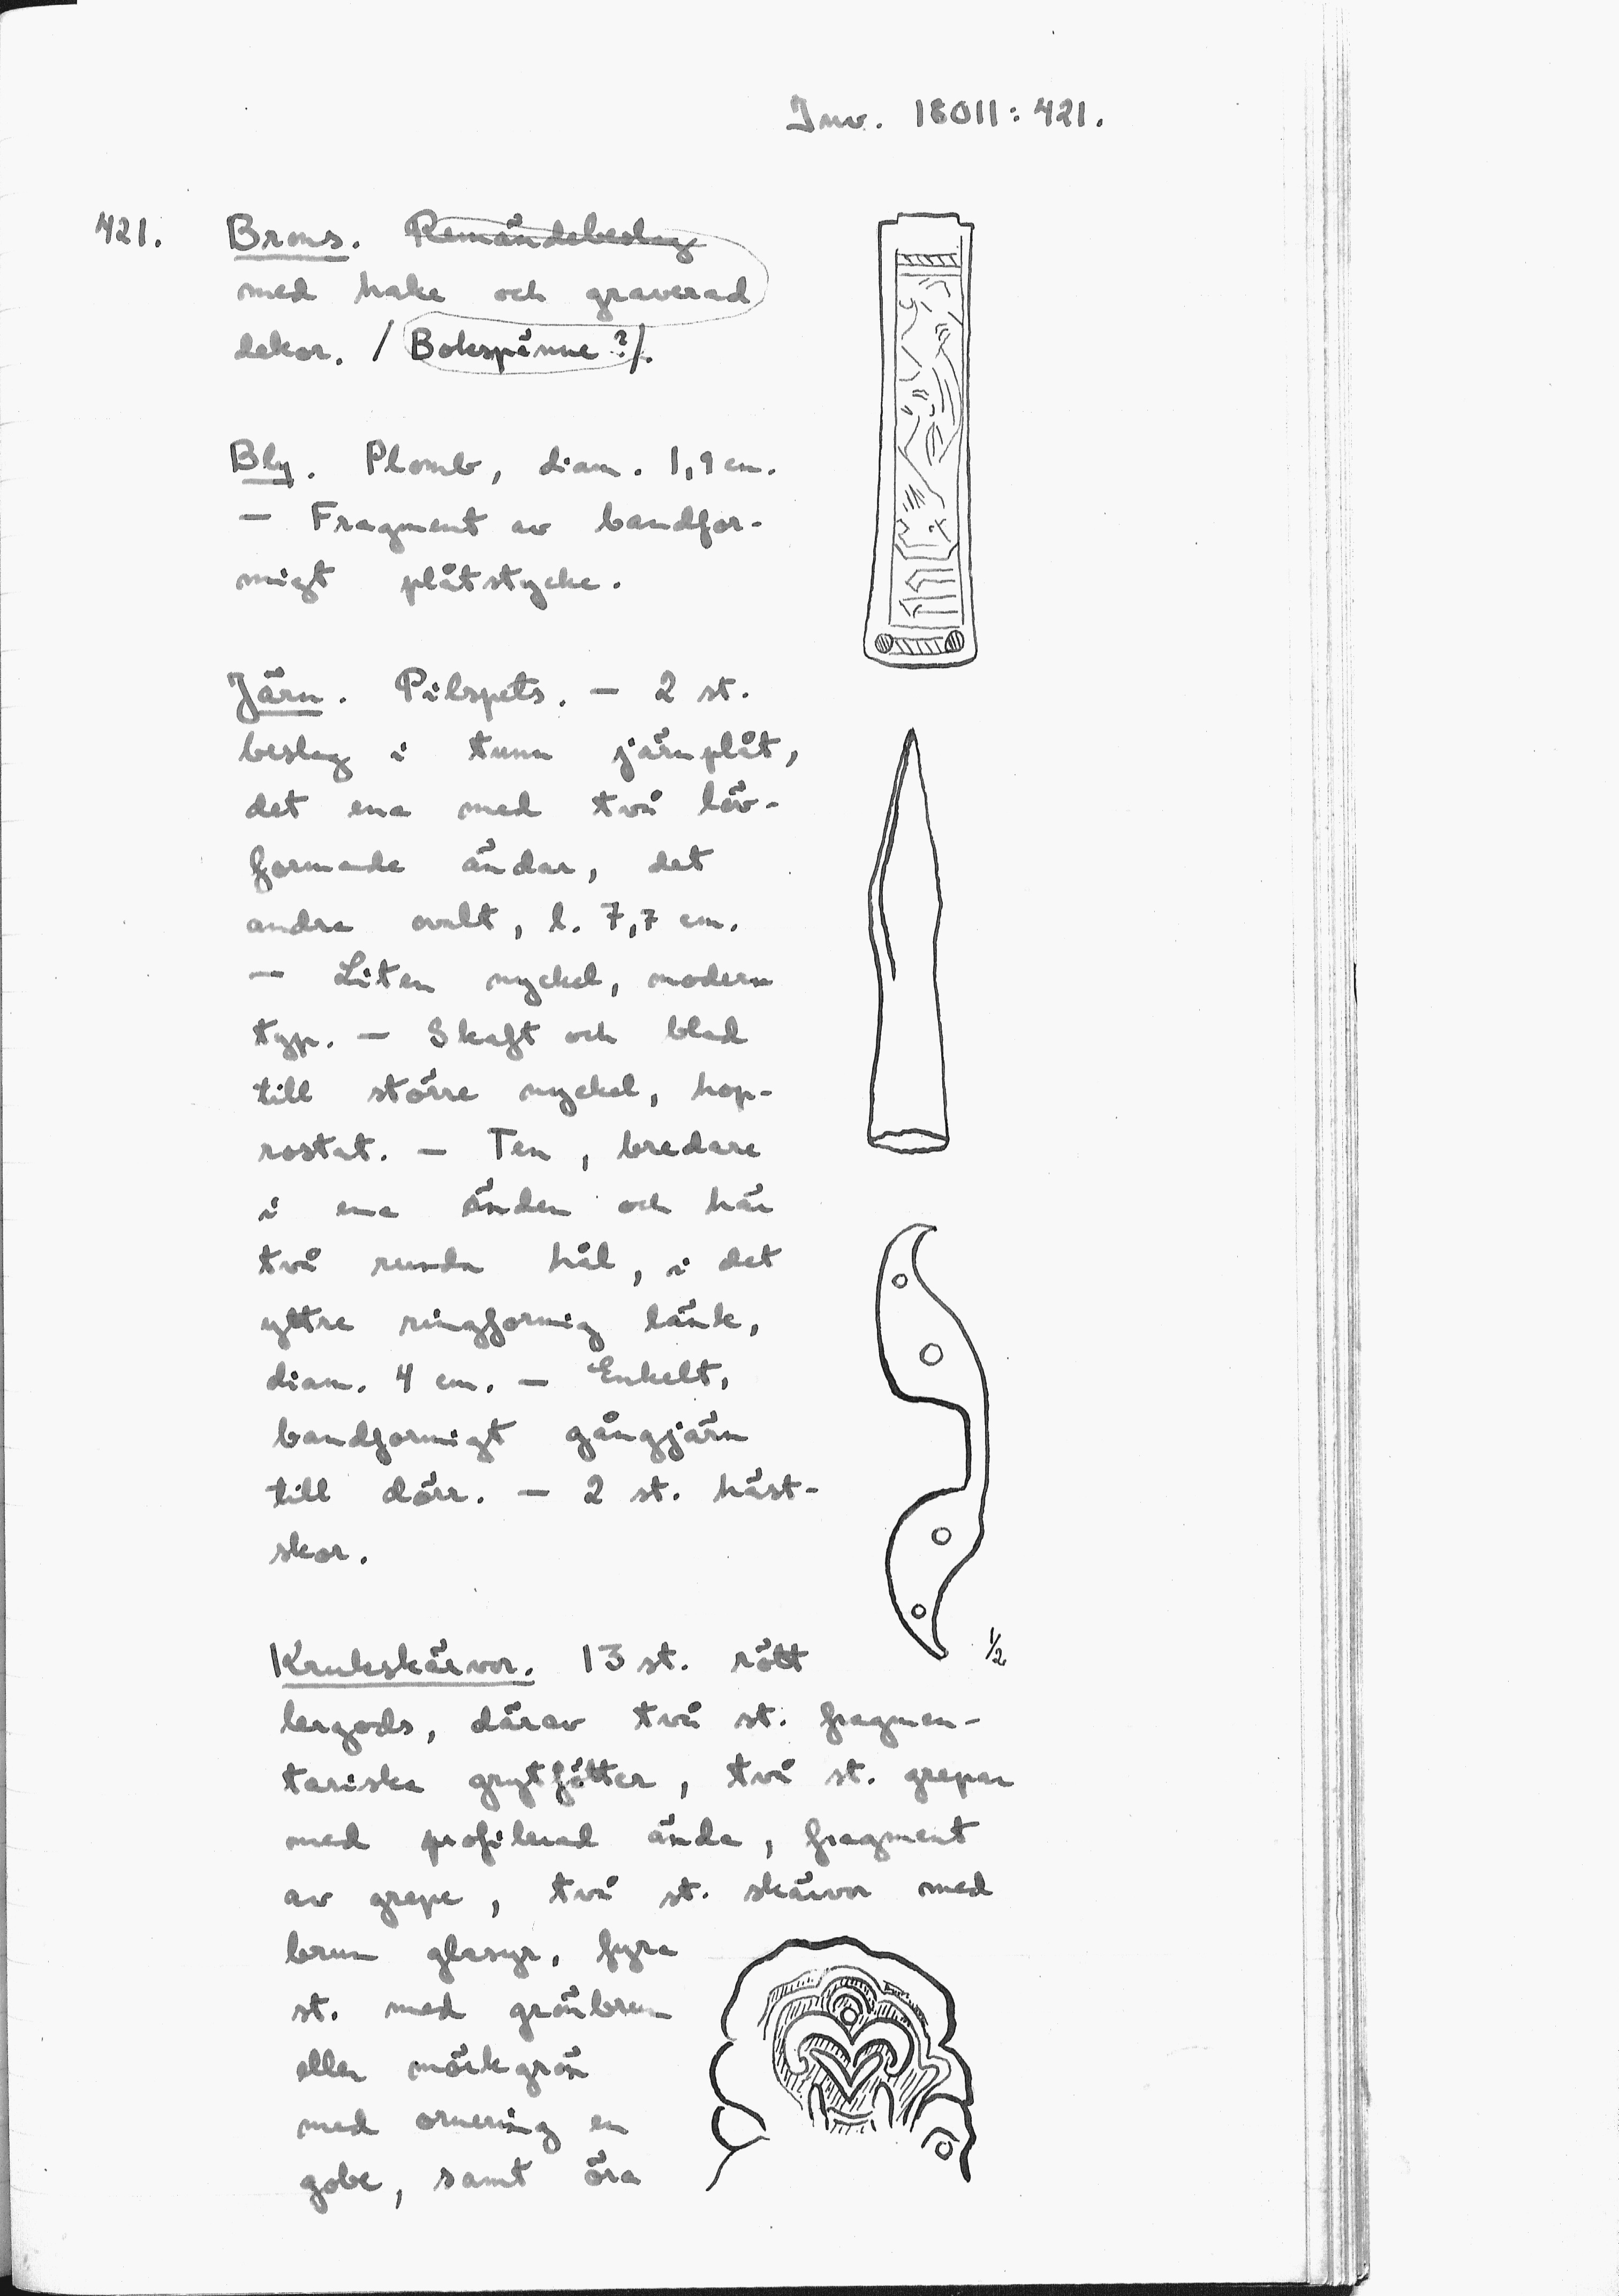 Inv. 18011:421.
421. Brons. Remändebeslag
med hake och graverad
dekor. / Bokspänne ?/.
Bly. Plomb, diam. 1,9 cm.
— Fragment av bandfor-
migt plåtstycke.
Järn. Pilspets. — 2 st.
beslag i tunn järnplåt,
det ena med två löv-
formade ändar, det
andra ovalt, l. 7,7 cm.
— Liten nyckel, modern
typ. — Skaft och blad
till större nyckel, hop-
rostat. — Ten, bredare
i ena änden och här
två runda hål, i det
yttre ringformig länk,
diam. 4 cm. — Enkelt,
bandformigt gångjärn
till dörr. — 2 st. häst-
skor.
1/2
Krukskärvor. 13 st. rött
lergods, därav två st. fragmen-
tariska grytfötter, två st. grepar
med profilerad ända, fragment
av grepe, två st. skärvor med
brun glasyr, fyra
st. med grönbrun
eller mörkgrön
med ornering en
gobe, samt öra